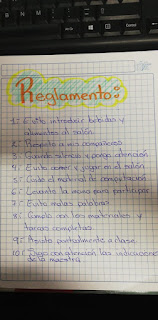 Reglamento:
1.- Evite introducir bebidas y
alimentos al salón.
2.- Respeto a mis compañeros
3.- Guarde silencio y ponga atención
4.- Evite correr y jugar en el salón
5.- Cuide el material de computación
6.- Levante la mano para participar
7.- Evite malas palabras
8.- Cumplo con los materiales y
tareas completas.
9.- Asista puntualmente a clase.
10.- Siga con atención las indicaciones
de la maestra